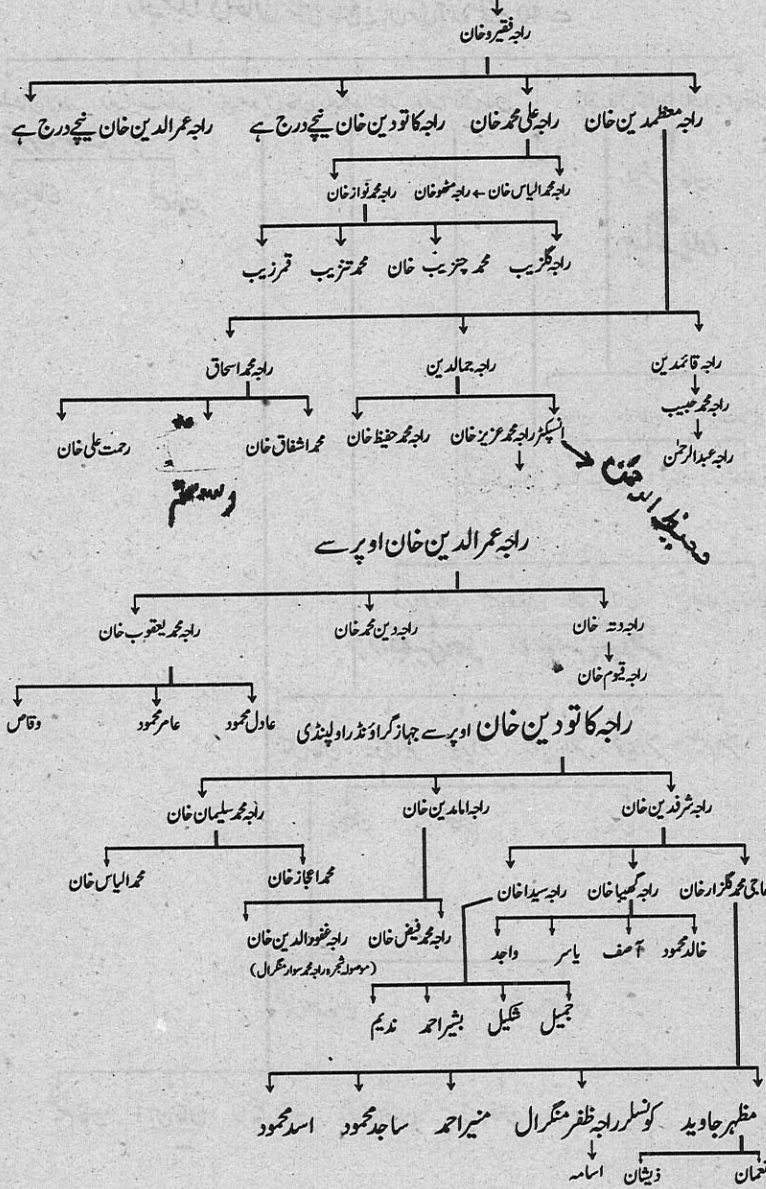 راجہ فقیرو خان
راجہ معظمدین خان راجہ علی محمد خان راجہ کاتودین خان نیچے درج ہے راجہ عمرالدین خان نیچے درج ہے
راجہ محمد الیاس خان ← راجہ مٹھو خان راجہ محمد نواز خان
راجہ گلزیب محمد چنزیب خان محمد تنزیب قمرزیب
راجہ قائمدین راجہ جمالدین راجہ محمد اسحاق
راجہ محمد حبیب
انسپکٹر راجہ محمد عزیز خان راجہ محمد حفیظ خان محمد اشفاق خان رحمت علی خان
راجہ عبدالرحمٰن
راجہ عمرالدین خان اوپر سے
راجہ دتہ خان راجہ دین محمد خان راجہ محمد یعقوب خان
راجہ قیوم خان
عادل محمود عامر محمود وقاص
راجہ کاتودین خان اوپر سے جہاز گراؤنڈ راولپنڈی
راجہ شرفدین خان راجہ امامدین خان راجہ محمد سلیمان خان
حاجی محمد گلزار خان راجہ گھیبا خان راجہ سیدا خان محمد اعجاز خان محمد الیاس خان
خالد محمود آصف یاسر واجد راجہ محمد فیض خان راجہ غفودالدین خان
(موصولہ شجرہ راجہ محمد سوار منگرال)
جمیل شکیل بشیر احمد ندیم
مظہر جاوید کونسلر راجہ ظفر منگرال منیر احمد ساجد محمود اسد محمود
نعمان ذیشان اسامہ